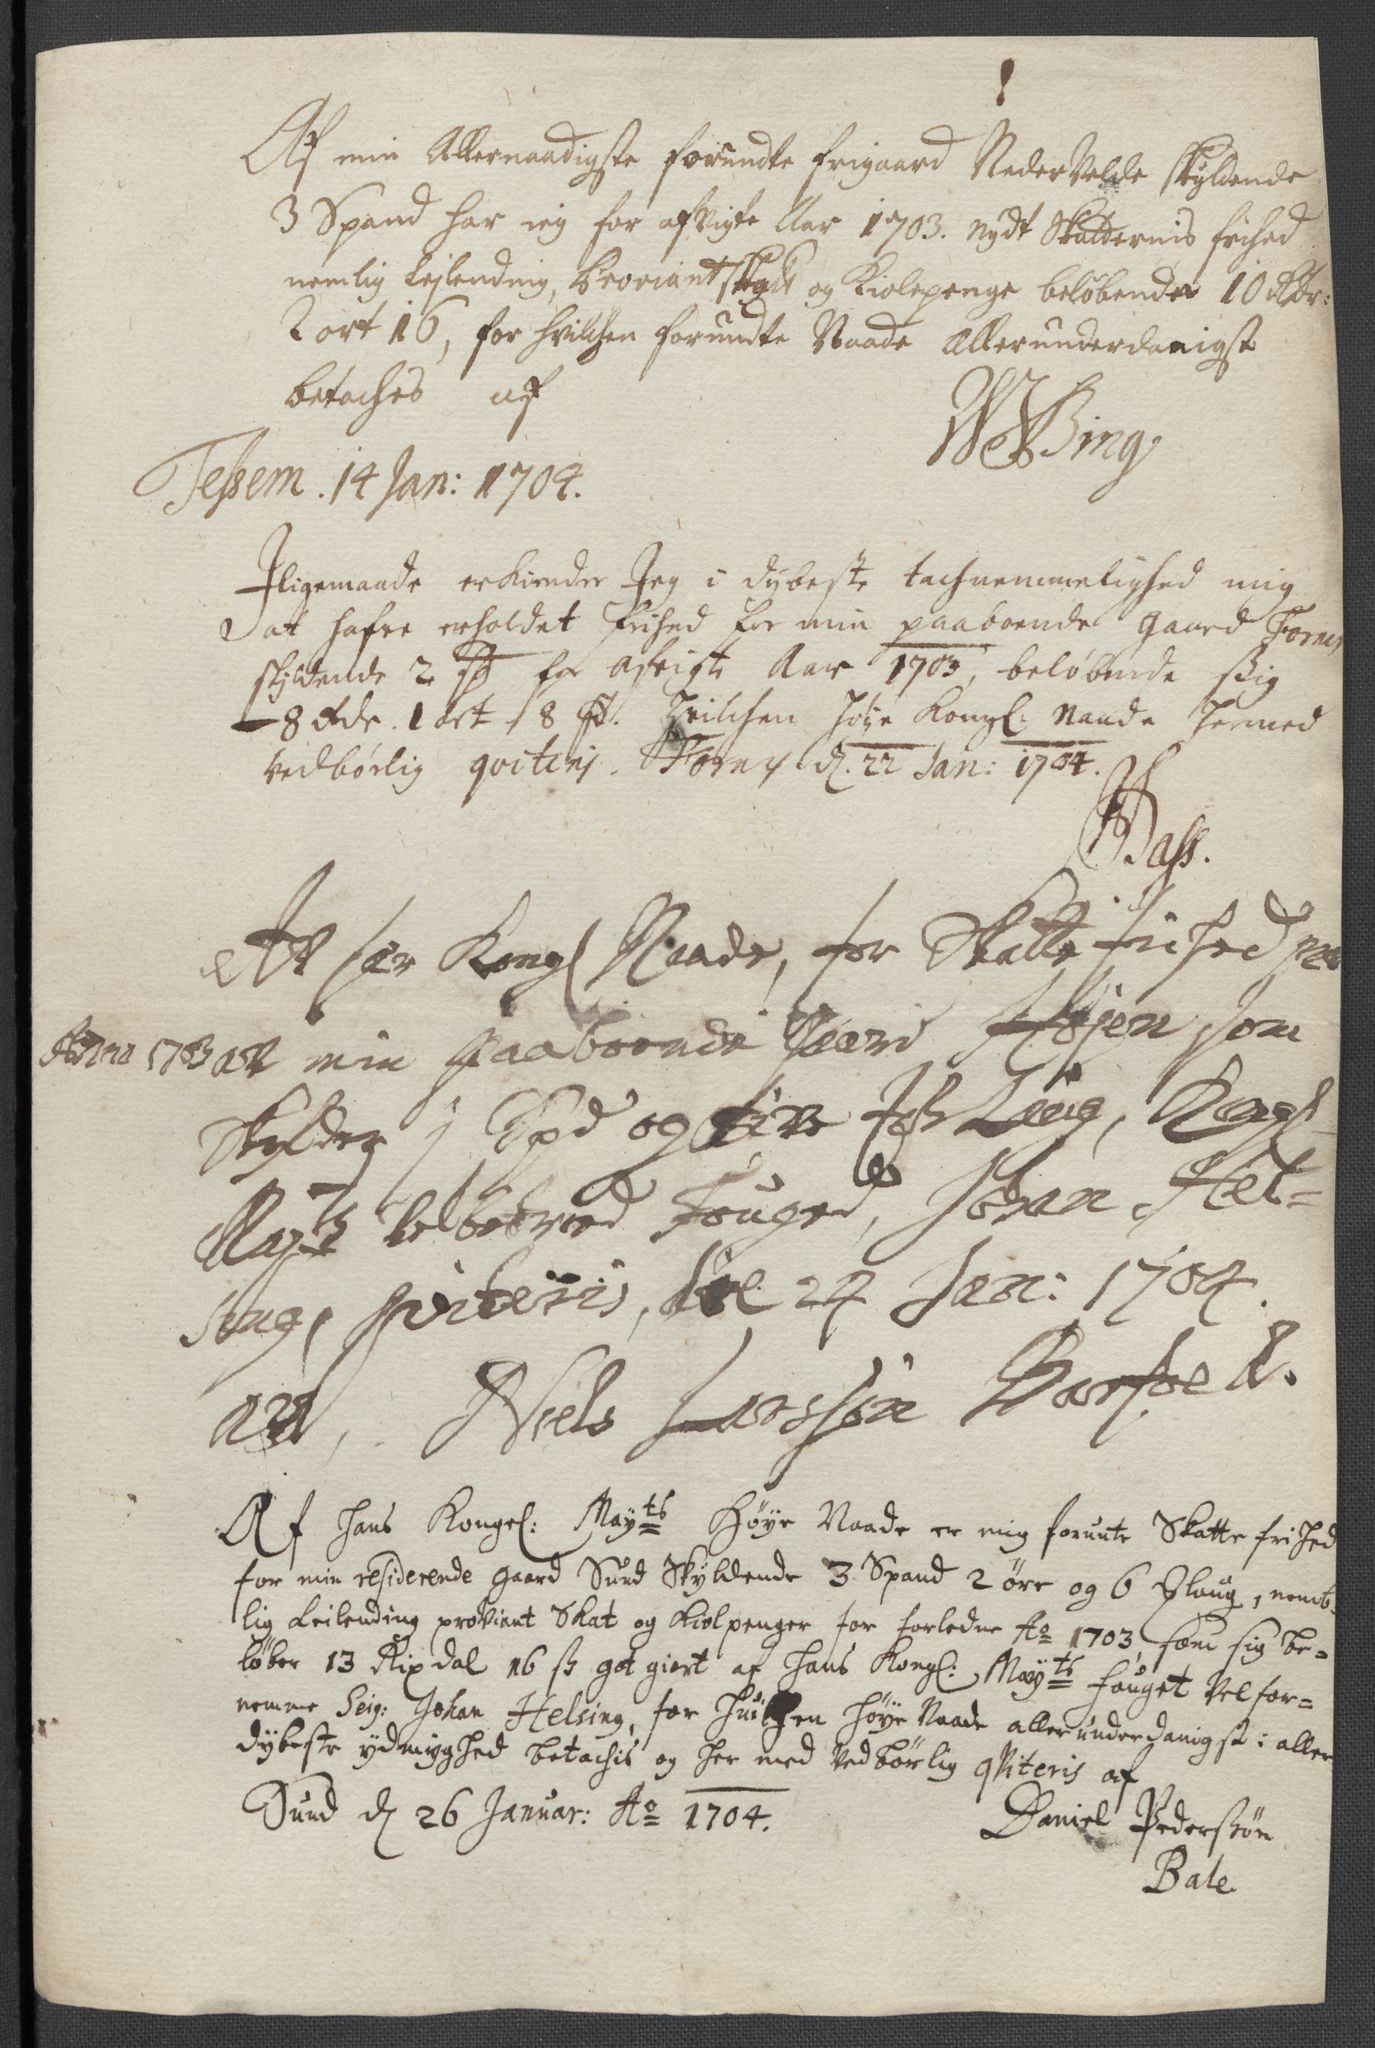 Af min Allernaadigste forundte frigaard NederVelde skyldende
3 Spand har ieg for afvigte Aar 1703. nydt Skatternis frihed
nemlig Leilending, Proviantskatt og Kiolepenge beløbende 10 Rdr:
2 ort 16, for hvilchen forundte Naade allerunderdanigst
betaches af
WBing
Tessem. 14 Jan: 1704.
Iligemaade erkiender Jeg i dybeste tachnemmelighed mig
at hafve erholdet frihed for min paaboende gaard Fornes
skyldende 2 sp for afvigte Aar 1703, beløbende sig
8 Rdr. 1 ort 8 s. Hvilchen høye Kongl: Naade hermed
vedbørlig qviteris. Fornes d. 22 Jan: 1704.
Bass.
At Kongl Naade, for Skatte frihed paa
Anno 1703 af min paaboende Gaard som
Skylder j Spd og Kongl
Mayts velbetroed Fouged, Johan Hel-
sing, qviteris, 24 Jan: 1704.
af, Niels Larssøn
Af Hans Kongel: Mayts Høye Naade er mig forunte Skatte frihed
for min residerende gaard Sund Skyldende 3 Spand 2 öre og 6 Mlaug, nemb-
lig Leilending proviant Skat og Kiolpenger for forledne Ao 1703, som sig be-
løber 13 Rixdal 16 s got giort af Hans Kongl: Mayts fouget Velfor-
nemme Seig: Johan Helsing, for huilchen Høye Naade allerunderdanigst i aller
dybeste ydmyghed betachis og her med vedbørlig qviteris af
Sund d 26 Januar: Ao 1704.
Daniel Pederssøn
Bale